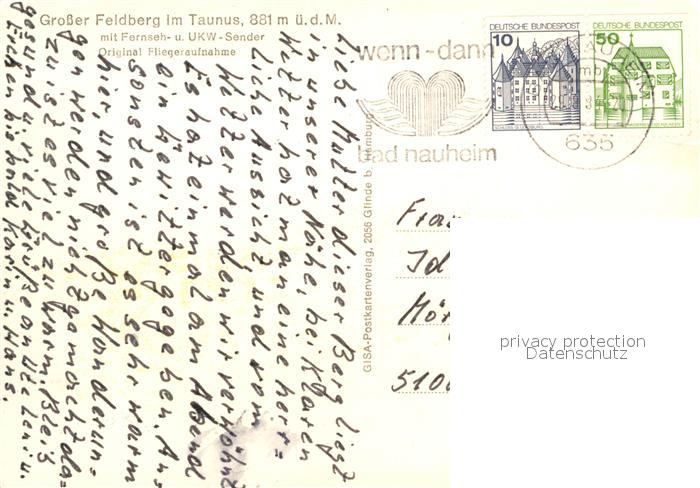 Großer Feldberg im Taunus, 881 m ü.d.M.
mit Fernseh- u. UKW-Sender
Original Fliegeraufnahme
Liebe Mutter dieser Berg liegt
in unserer Nähe, bei klaren
Wetter hat man eine herr=
liche Aussicht und vom
Wetter werden wir verwöhnt
Es hat einmal am Abend
ein Gewitter gegeben. An=
sonsten ist es sehr warm
hier, und große Wanderun=
gen werden nicht gemacht da=
zu ist es viel zu warm. Bleib
gesund u. viele Grüße an
bis bald Karin u. Hans.
GISA-Postkartenverlag, 2056 Glinde b. Hamburg
wenn-dann
bad nauheim
DEUTSCHE BUNDESPOST
10
DEUTSCHE BUNDESPOST
50
635
Frau
Id
Mör
510
privacy protection
Datenschutz